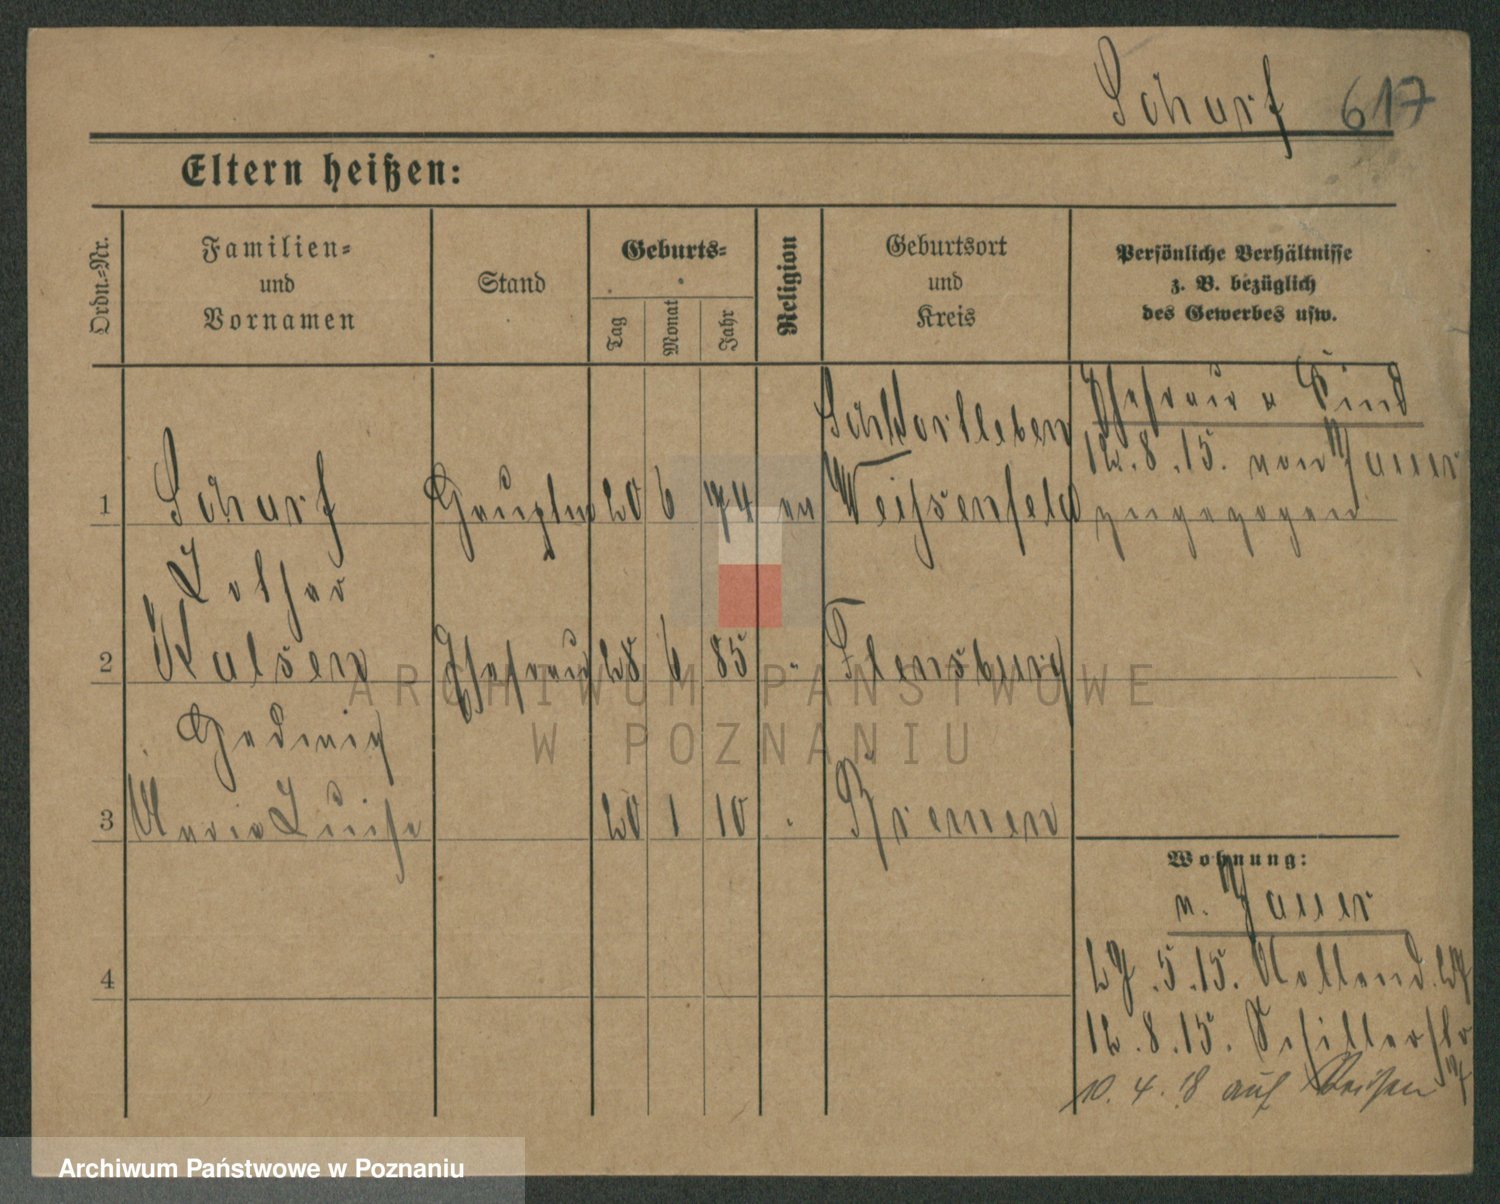 Scharf 617
Eltern heißen:
Ordn.-Nr.
Familien-
und
Vornamen
Stand
Geburts-
Tag
Monat
Jahr
Religion
Geburtsort
und
Kreis
Persönliche Verhältnisse
z. B. bezüglich
des Gewerbes usw.
Ehefrau u Kind
12.8.15. von Jauer
zugezogen
Schkortleben
1 Scharf Hauptm 20 6 74 ev Weißenfels
Lothar
2 Ehefrau 28 6 85 " Flensburg
Hedwig
3 Marie Luise 20 1 10 " Bremen
4
Wohnung:
v. Jauer
5.15.
12.8.15. Schillerstr
10.4.18 auf Reisen
ARCHIWUM PAŃSTWOWE
W POZNANIU
Archiwum Państwowe w Poznaniu